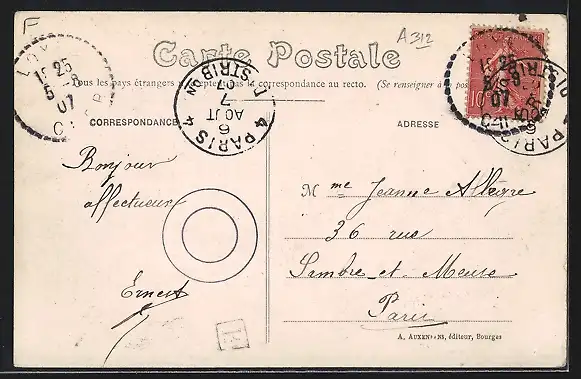 F
A312
Carte Postale
Tous les pays étrangers n'acceptent pas la correspondance au recto. (Se renseigner à la poste
CORRESPONDANCE
ADRESSE
PARIS 4
DISTRIBON
6
AOUT
07
10
Bonjour
affectueux
Ernest
Mme Jeanne Allègre
36 rue
Sambre-et-Meuse
Paris
A. AUXENFANS, éditeur, Bourges